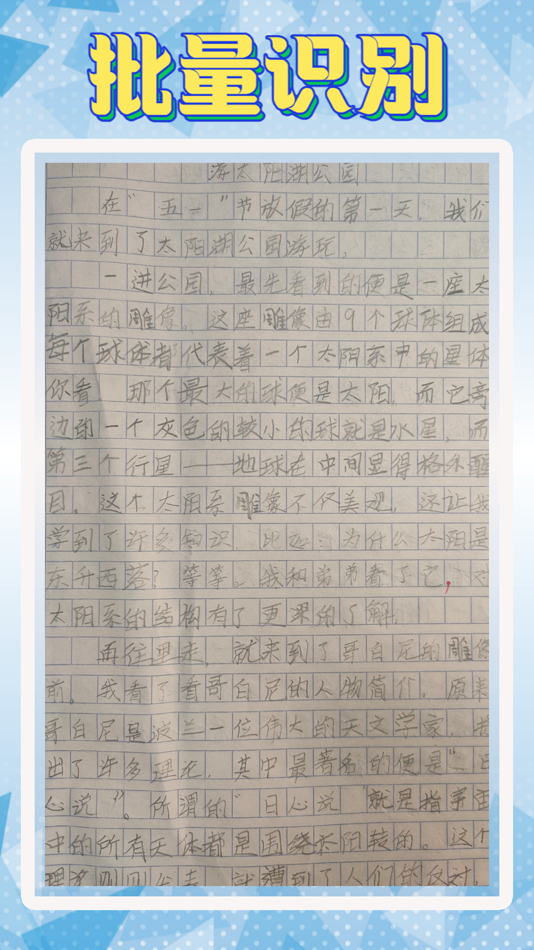 批量识别
游太阳湖公园
在"五一"节放假的第一天，我们
就来到了太阳湖公园游玩。
一进公园，最先看到的便是一座太
阳系的雕像。这座雕像由9个球体组成
每个球体都代表着一个太阳系中的星体
你看，那个最大的球便是太阳，而它旁
边的一个灰色的较小的球就是水星，而
第三个行星——地球在中间显得格外醒
目。这个太阳系雕像不仅美观，还让我
学到了许多知识，比如：为什么太阳是
东升西落？等等。我和弟弟看了它，对
太阳系的结构有了更深的了解。
再往里走，就来到了哥白尼的雕像
前。我看了看哥白尼的人物简介，原来
哥白尼是波兰一位伟大的天文学家，提
出了许多理论，其中最著名的便是"日
心说"。所谓的"日心说 就是指宇宙
中的所有天体都是围绕太阳转的。这个
理论刚刚公布，就遭到了人们的反对，